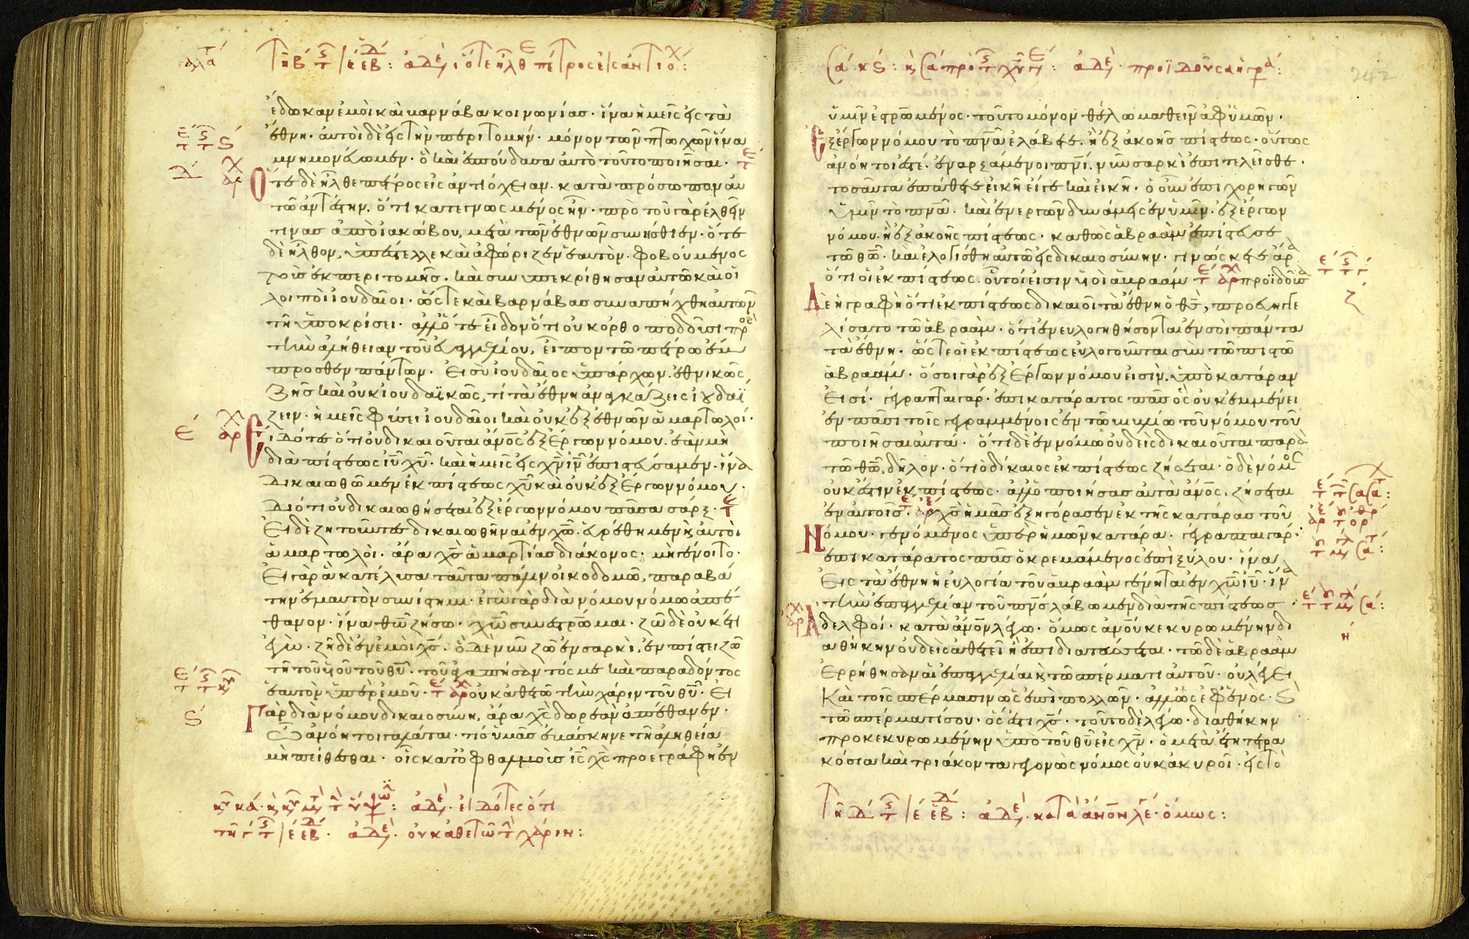 Τῆ β τ ε εβ: ἀδελ, ὅτε ἦλθε πέτρος εἰς ἀντιο χ:
ἔδωκαν ἐμοὶ καὶ βαρνάβα κοινωνίας· ἵνα ἡμεῖς εἰς τὰ
ἔθνη· αὐτοὶ δὲ εἰς τὴν περιτομήν· μόνον τῶν πτωχῶν ἵνα
μνημονεύωμεν· ὃ καὶ ἐσπούδασα αὐτὸ τοῦτο ποιῆσαι·
Ὅτε δὲ ἦλθε πέτρος εἰς ἀντιόχειαν· κατὰ πρόσωπον αὐ
τῶ ἀντέστην, ὅτι κατεγνωσμένος ἦν· πρὸ τοῦ γὰρ ἐλθεῖν
τινὰς ἀπὸ ἰακώβου, μετὰ τῶν ἐθνῶν συνήσθιεν· ὅτε
δὲ ἦλθον, ὑπέστελλε καὶ ἀφώριζεν ἑαυτόν· φοβούμενος
τοὺς ἐκ περιτομῆς· καὶ συνυπεκρίθησαν αὐτῶ καὶ οἱ
λοιποὶ ἰουδαῖοι· ὥστε καὶ βαρνάβας συναπήχθη αὐτῶν
τῆ ὑποκρίσει· ἀλλ' ὅτε εἶδον ὅτι οὐκ ὀρθοποδοῦσι πρὸς
τὴν ἀλήθειαν τοῦ εὐαγγελίου, εἶπον τῶ πέτρω ἔμ
προσθεν πάντων· Εἰ σὺ ἰουδαῖος ὑπάρχων, ἐθνικῶς
ζῆς καὶ οὐκ ἰουδαϊκῶς, τί τὰ ἔθνη ἀναγκάζεις ἰουδαΐ
ζειν· ἡμεῖς φύσει ἰουδαῖοι καὶ οὐκ ἐξ ἐθνῶν ἁμαρτωλοί·
Εἰδότες ὅτι οὐ δικαιοῦται ἄνος ἐξ ἔργων νόμου· ἐὰν μὴ
διὰ πίστεως ιυ χυ· καὶ ἡμεῖς εἰς χν ιν ἐπιστεύσαμεν· ἵνα
δικαιωθῶμεν ἐκ πίστεως χυ καὶ οὐκ ἐξ ἔργων νόμου·
διότι οὐ δικαιωθήσεται ἐξ ἔργων νόμου πᾶσα σάρξ·
Εἰ δὲ ζητοῦντες δικαιωθῆναι ἐν χω εὑρέθημεν καὶ αὐτοὶ
ἁμαρτωλοί· ἆρα χς ἁμαρτίας διάκονος· μὴ γένοιτο·
Εἰ γὰρ ἃ κατέλυσα ταῦτα πάλιν οἰκοδομῶ, παραβά
την ἐμαυτὸν συνίστημι· ἐγὼ γὰρ διὰ νόμου νόμω ἀπέ
θανον· ἵνα θω ζήσω· χω συνεσταύρωμαι· ζῶ δὲ οὐκέτι
ἐγώ· ζῆ δὲ ἐν ἐμοὶ χς· ὃ δὲ νῦν ζῶ ἐν σαρκί, ἐν πίστει ζῶ
τῆ τοῦ υυ τοῦ θυ· τοῦ ἀγαπήσαντός με καὶ παραδόντος
ἑαυτὸν ὑπὲρ ἐμοῦ· οὐκ ἀθετῶ τὴν χάριν τοῦ θυ· Εἰ
Γὰρ διὰ νόμου δικαιοσύνη, ἄρα χς δωρεὰν ἀπέθανεν·
Ὦ ἀνόητοι γαλάται· τίς ὑμᾶς ἐβάσκηνε τῆ ἀληθεία
μὴ πείθεσθαι· οἷς κατ' ὀφθαλμοὺς ις χς προεγράφη ἐν
ἀδελ, εἰδότες ὅτι
τῆ γ τ ε εβ· ἀδελ· οὐκ ἀθετῶ τὴν χάριν:
ἀδελ· προϊδοῦσα ἡ γρα:
242
ὑμῖν ἐσταυρωμένος· τοῦτο μόνον θέλω μαθεῖν ἀφ' ὑμῶν·
Ἐξ ἔργων νόμου τὸ πνα ἐλάβετε· ἢ ἐξ ἀκοῆς πίστεως· οὕτως
ἀνόητοί ἐστε· ἐναρξάμενοι πνι, νῦν σαρκὶ ἐπιτελεῖσθε·
τοσαῦτα ἐπάθετε εἰκῆ εἴγε καὶ εἰκῆ· ὁ οὖν ἐπιχορηγῶν
ὑμῖν τὸ πνα· καὶ ἐνεργῶν δυνάμεις ἐν ὑμῖν· ἐξ ἔργων
νόμου ἢ ἐξ ἀκοῆς πίστεως· καθὼς ἀβραὰμ ἐπίστευσε
τῶ θω· καὶ ἐλογίσθη αὐτῶ εἰς δικαιοσύνην· γινώσκετε ἄρα
ὅτι οἱ ἐκ πίστεως· οὗτοί εἰσιν υἱοὶ ἀβραάμ· προϊδοῦσα
Δὲ ἡ γραφὴ ὅτι ἐκ πίστεως δικαιοῖ τὰ ἔθνη ὁ θς, προευηγγε
λίσατο τῶ ἀβραάμ· ὅτι ἐνευλογηθήσονται ἐν σοὶ πάντα
τὰ ἔθνη· ὥστε οἱ ἐκ πίστεως εὐλογοῦνται σὺν τῶ πιστῶ
ἀβραάμ· ὅσοι γὰρ ἐξ ἔργων νόμου εἰσὶν, ὑπὸ κατάραν
Εἰσί· γέγραπται γάρ· ἐπικατάρατος πᾶς ὃς οὐκ ἐμμένει
ἐν πᾶσι τοῖς γεγραμμένοις ἐν τῶ βιβλίω τοῦ νόμου τοῦ
ποιῆσαι αὐτά· ὅτι δὲ ἐν νόμω οὐδεὶς δικαιοῦται παρὰ
τῶ θω, δῆλον· ὅτι ὁ δίκαιος ἐκ πίστεως ζήσεται· ὁ δὲ νόμος
οὐκ ἔστιν ἐκ πίστεως· ἀλλ' ὁ ποιήσας αὐτὰ ἄνος, ζήσεται
ἐν αὐτοῖς· χς ἡμᾶς ἐξηγόρασεν ἐκ τῆς κατάρας τοῦ
Νόμου· γενόμενος ὑπὲρ ἡμῶν κατάρα· γέγραπται γάρ·
ἐπικατάρατος πᾶς ὁ κρεμάμενος ἐπὶ ξύλου· ἵνα
Εἰς τὰ ἔθνη ἡ εὐλογία τοῦ ἀβραὰμ γένηται ἐν χω ιυ· ἵνα
τὴν ἐπαγγελίαν τοῦ πνς λάβωμεν διὰ τῆς πίστεως·
Ἀδελφοί· κατὰ ἄνον λέγω· ὅμως ἀνου κεκυρωμένην δι
αθήκην οὐδεὶς ἀθετεῖ ἢ ἐπιδιατάσσεται· τῶ δὲ ἀβραὰμ
Ἐρρήθησαν αἱ ἐπαγγελίαι καὶ τῶ σπέρματι αὐτοῦ· οὐ λέγει
Καὶ τοῖς σπέρμασιν ὡς ἐπὶ πολλῶν· ἀλλ' ὡς ἐφ' ἑνός· καὶ
τῶ σπέρματί σου· ὅς ἐστι χς· τοῦτο δὲ λέγω· διαθήκην
προκεκυρωμένην ὑπὸ τοῦ θυ εἰς χν· ὁ μετὰ ἔτη τετρα
κόσια καὶ τριάκοντα γεγονὼς νόμος οὐκ ἀκυροῖ· εἰς τὸ
Τῆ δ τ ε εβ: ἀδελ· κατὰ ἄνον λέ· ὅμως: